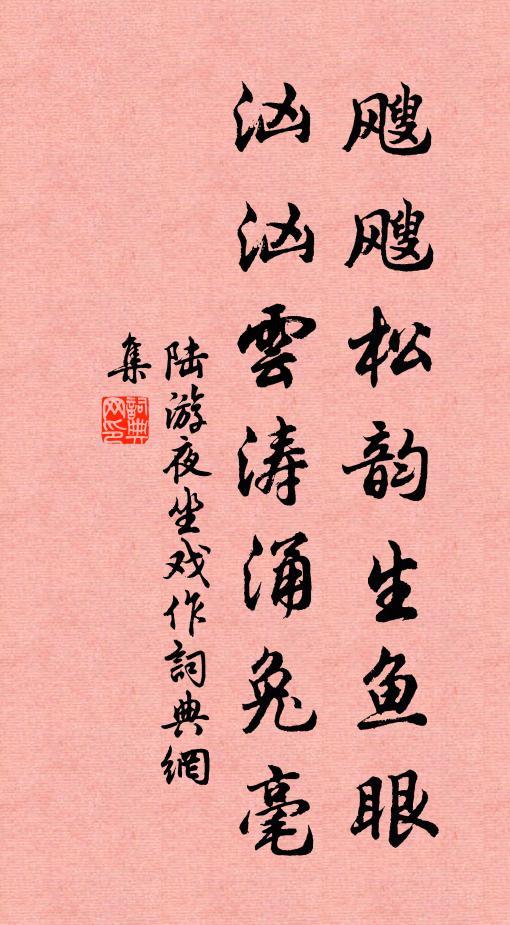 飕飕松韵生鱼眼
汹汹雲涛涌兔毫
陆游夜坐戏作詞典網
集
詞典
网印